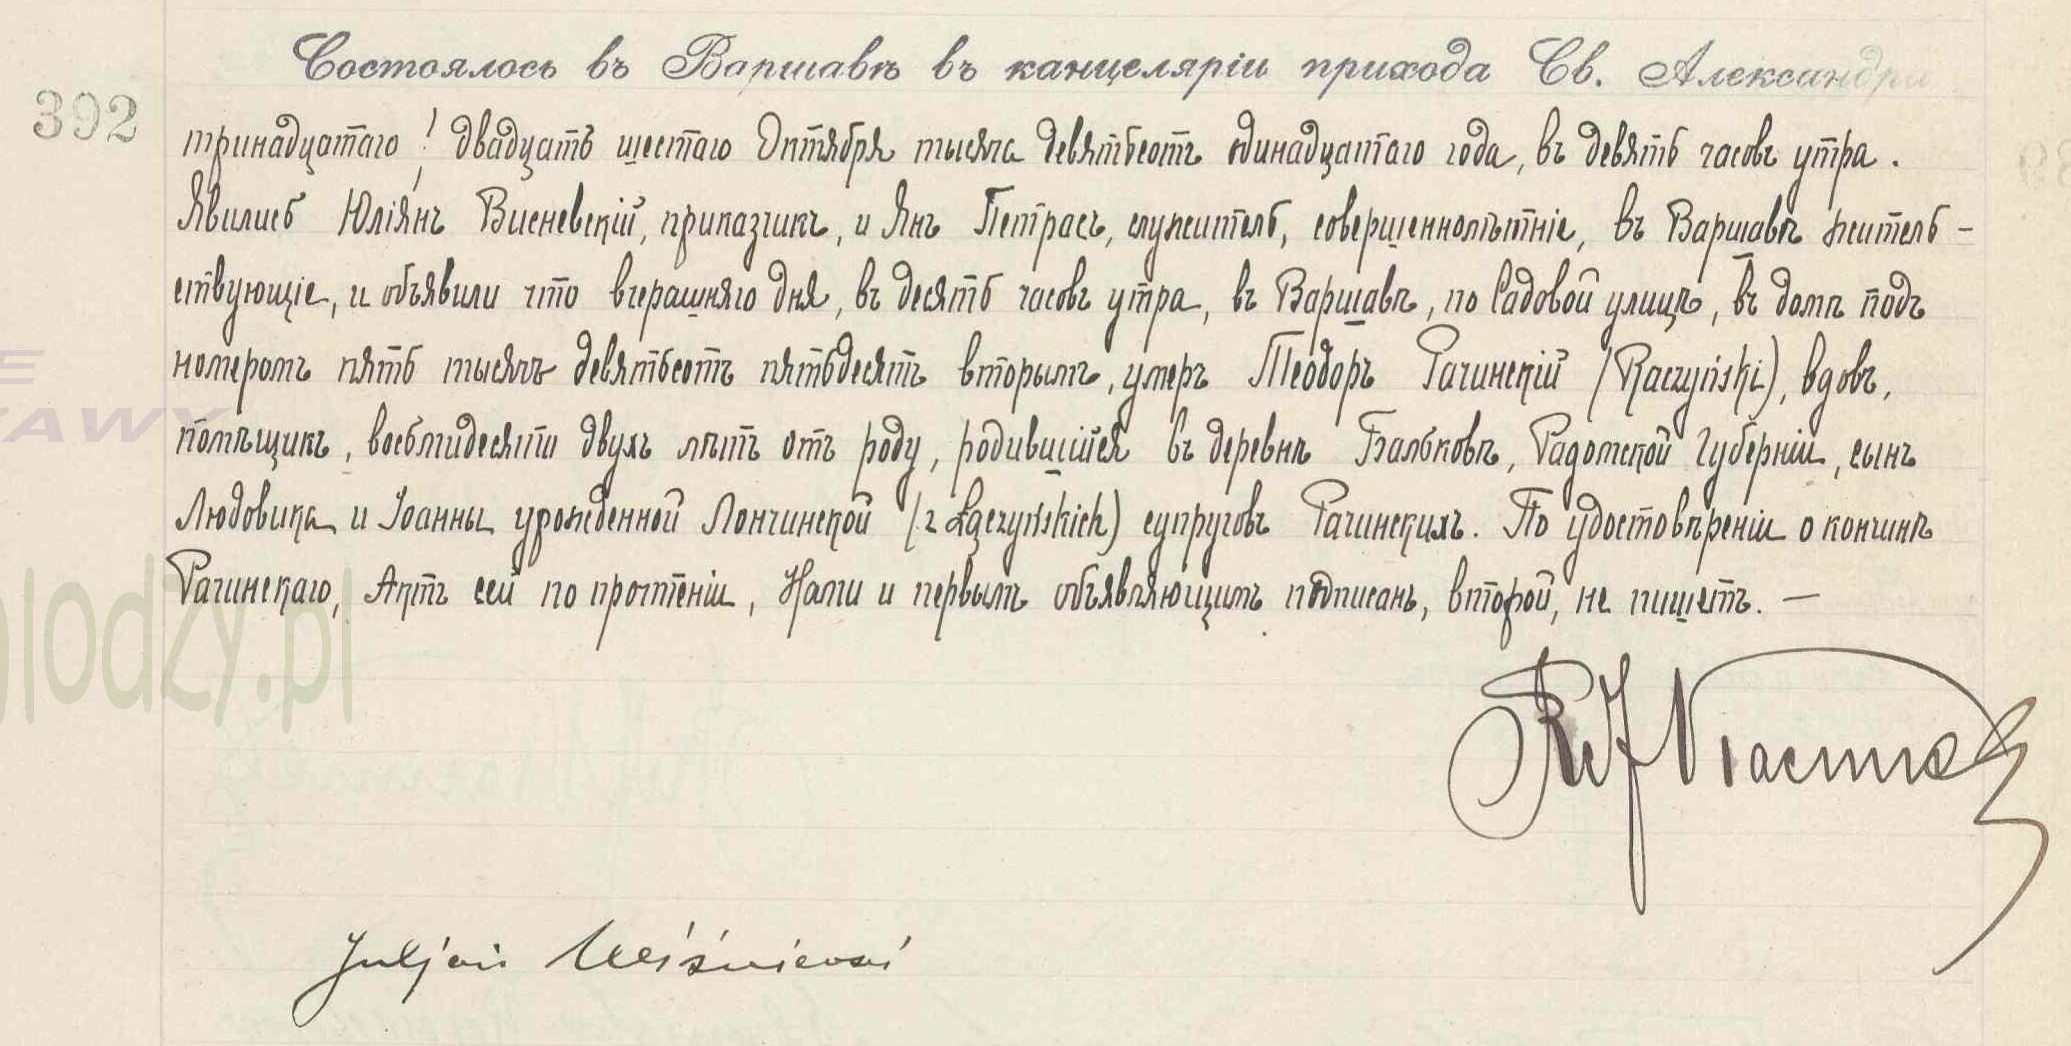 Состоялось въ Варшавѣ въ канцеляріи прихода Св. Александра
392
тринадцатаго / двадцать шестаго Октября тысяча девятьсотъ одинадцатаго года, въ девять часовъ утра.
Явились Юліянъ Висневскій, приказчикъ, и Янъ Петрась, служитель, совершеннолѣтніе, въ Варшавѣ житель-
ствующіе, и объявили что вчерашняго дня, въ десять часовъ утра, въ Варшавѣ, по Садовой улицѣ, въ домѣ подъ
номеромъ пять тысячъ девятьсотъ пятьдесятъ вторымъ, умеръ Теодоръ Рачинскій /Raczyński), вдовъ,
помѣщикъ, восьмидесяти двухъ лѣтъ отъ роду, родившійся въ деревнѣ Бальковѣ, Радомской Губерніи, сынъ
Людовика и Іоанны урожденной Лончинской /z Łączyńskich) супруговъ Рачинскихъ. По удостовѣреніи о кончинѣ
Рачинскаго, Актъ сей по прочтеніи, Нами и первымъ объявляющимъ подписанъ, второй, не пишетъ. —
Juljan Wiśniewski
glodzy.pl